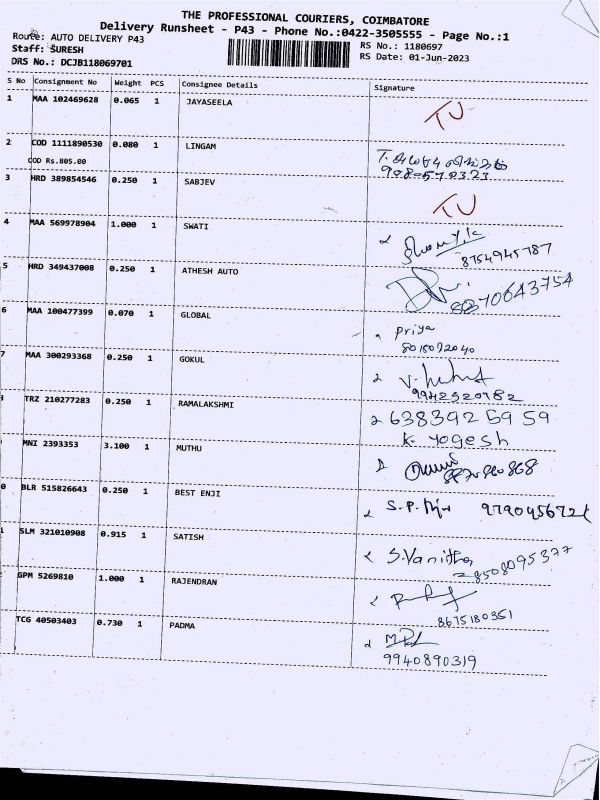 THE PROFESSIONAL COURIERS, COIMBATORE
Delivery Runsheet - P43 - Phone No.:0422-3505555 - Page No.:1
Route: AUTO DELIVERY P43
RS No.: 1180697
Staff: SURESH
RS Date: 01-Jun-2023
DRS No.: DCJB118069701
S No Consignment No Weight PCS Consignee Details Signature
1 MAA 102469628 0.065 1 JAYASEELA TU
2 COD 1111890530 0.080 1 LINGAM
COD Rs.805.00
3 HRD 389854546 0.250 1 SABJEV TU
4 MAA 569978904 1.000 1 SWATI
8754945787
5 HRD 349437008 0.250 1 ATHESH AUTO
6 MAA 100477399 0.070 1 GLOBAL Priya
8015072040
7 MAA 300293368 0.250 1 GOKUL
9942520782
TRZ 210277283 0.250 1 RAMALAKSHMI 6383925959
K. Yogesh
MNI 2393353 3.100 1 MUTHU
0 BLR 515826643 0.250 1 BEST ENJI S.P.
SLM 321010908 0.915 1 SATISH S.Vanitha
8508095377
GPM 5269810 1.000 1 RAJENDRAN
8675180351
TCG 40503403 0.730 1 PADMA
9940890319